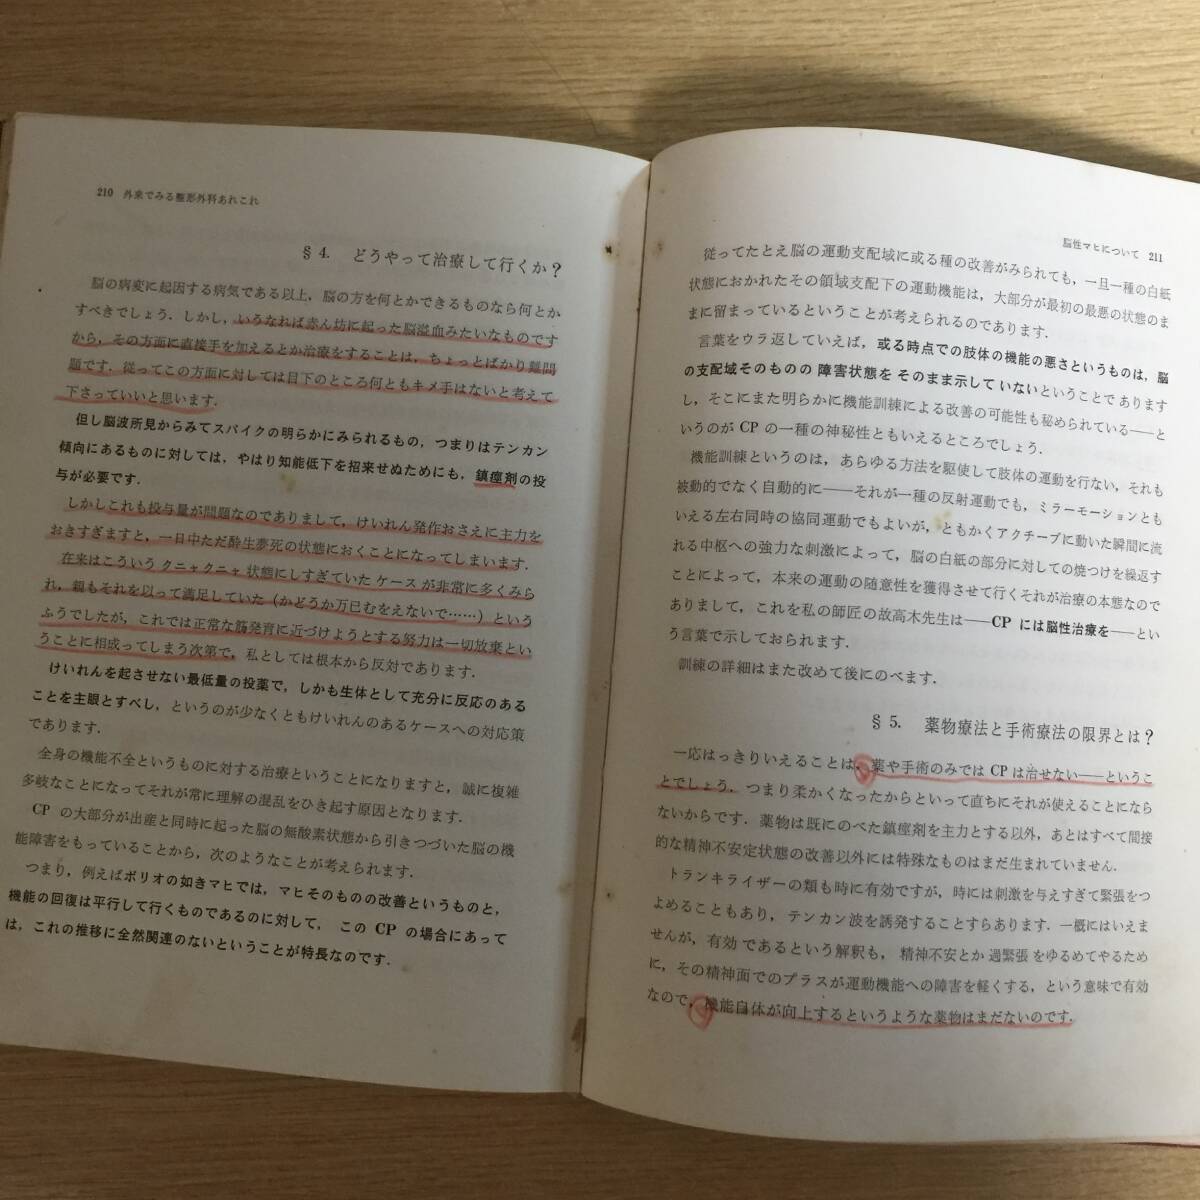 210 外来でみる整形外科あれこれ
§4. どうやって治療して行くか？
脳の病変に起因する病気である以上，脳の方を何とかできるものなら何とか
すべきでしょう．しかし，いうなれば赤ん坊に起った脳溢血みたいなものです
から，その方面に直接手を加えるとか治療をすることは，ちょっとばかり難問
題です．従ってこの方面に対しては目下のところ何ともキメ手はないと考えて
下さっていいと思います．
但し脳波所見からみてスパイクの明らかにみられるもの，つまりはテンカン
傾向にあるものに対しては，やはり知能低下を招来せぬためにも，鎮痙剤の投
与が必要です．
しかしこれも投与量が問題なのでありまして，けいれん発作おさえに主力を
おきすぎますと，一日中ただ酔生夢死の状態におくことになってしまいます．
在来はこういうクニャクニャ状態にしすぎていたケースが非常に多くみら
れ，親もそれを以って満足していた（かどうか万已むをえないで……）という
ふうでしたが，これでは正常な筋発育に近づけようとする努力は一切放棄とい
うことに相成ってしまう次第で，私としては根本から反対であります．
けいれんを起させない最低量の投薬で，しかも生体として充分に反応のある
ことを主眼とすべし，というのが少なくともけいれんのあるケースへの対応策
であります．
全身の機能不全というものに対する治療ということになりますと，誠に複雑
多岐なことになってそれが常に理解の混乱をひき起す原因となります．
CP の大部分が出産と同時に起った脳の無酸素状態から引きつづいた脳の機
能障害をもっていることから，次のようなことが考えられます．
つまり，例えばポリオの如きマヒでは，マヒそのものの改善というものと，
機能の回復は平行して行くものであるのに対して，この CP の場合にあって
は，これの推移に全然関連のないということが特長なのです．
脳性マヒについて 211
従ってたとえ脳の運動支配域に或る種の改善がみられても，一旦一種の白紙
状態におかれたその領域支配下の運動機能は，大部分が最初の最悪の状態のま
まに留まっているということが考えられるのであります．
言葉をウラ返していえば，或る時点での肢体の機能の悪さというものは，脳
の支配域そのものの障害状態をそのまま示していないということであります
し，そこにまた明らかに機能訓練による改善の可能性も秘められている——と
いうのが CP の一種の神秘性ともいえるところでしょう．
機能訓練というのは，あらゆる方法を駆使して肢体の運動を行ない，それも
被動的でなく自動的に——それが一種の反射運動でも，ミラーモーションとも
いえる左右同時の協同運動でもよいが，ともかくアクチーブに動いた瞬間に流
れる中枢への強力な刺激によって，脳の白紙の部分に対しての焼つけを繰返す
ことによって，本来の運動の随意性を獲得させて行くそれが治療の本態なので
ありまして，これを私の師匠の故高木先生は——CP には脳性治療を——とい
う言葉で示しておられます．
訓練の詳細はまた改めて後にのべます．
§5. 薬物療法と手術療法の限界とは？
一応はっきりいえることは，薬や手術のみでは CP は治せない——というこ
とでしょう．つまり柔かくなったからといって直ちにそれが使えることになら
ないからです．薬物は既にのべた鎮痙剤を主力とする以外，あとはすべて間接
的な精神不安定状態の改善以外には特殊なものはまだ生まれていません．
トランキライザーの類も時に有効ですが，時には刺激を与えすぎて緊張をつ
よめることもあり，テンカン波を誘発することすらあります．一概にはいえま
せんが，有効であるという解釈も，精神不安とか過緊張をゆるめてやるため
に，その精神面でのプラスが運動機能への障害を軽くする，という意味で有効
なので，機能自体が向上するというような薬物はまだないのです．